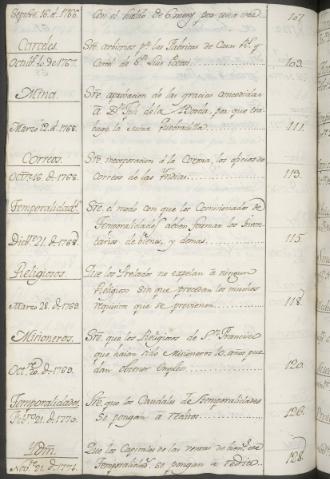 Septre. 16. d. 1766.
107.
Carceles.
Octubre 6. de 1767.
Sre. arbitrios pa. las Fabricas de Casas Rs. y
Carcel de Sn. Luis Potosí
103.
Mina.
Marzo 12. de 1768.
Sre. aprobacion de las gracias concedidas
à Dn. José de la Borda, pa. que tra-
baxe la mina
111.
Correos.
Octre. 16. de 1768.
Sre. incorporacion à la Corona, los oficios de
Correos de las Yndias
113.
Temporalidads.
Dicre. 21. de 1768.
Sre. el modo con que los Comisionados de
Temporalidads. deben formar los Ynven-
tarios de bienes, y demas
115.
Religiosos
Marzo 28. de 1769.
Que los Prelados no expelan à ningun
Religioso sin que precedan los muchos
requisitos que se previenen
118.
Misioneros.
Octre. 20. de 1769.
Sre. que los Religiosos de Sn. Francisco
que haian sido Misioneros 10. años pue-
dan obtener Empleos
120.
Temporalidades
Febro. 21. de 1770.
Sre. que los Caudales de Temporalidades
se pongan à reditos
126.
Ydm.
Novre. 21. de 1771.
Que los Capitales de las ventas de bienes de
Temporalids. se pongan a redito
128.